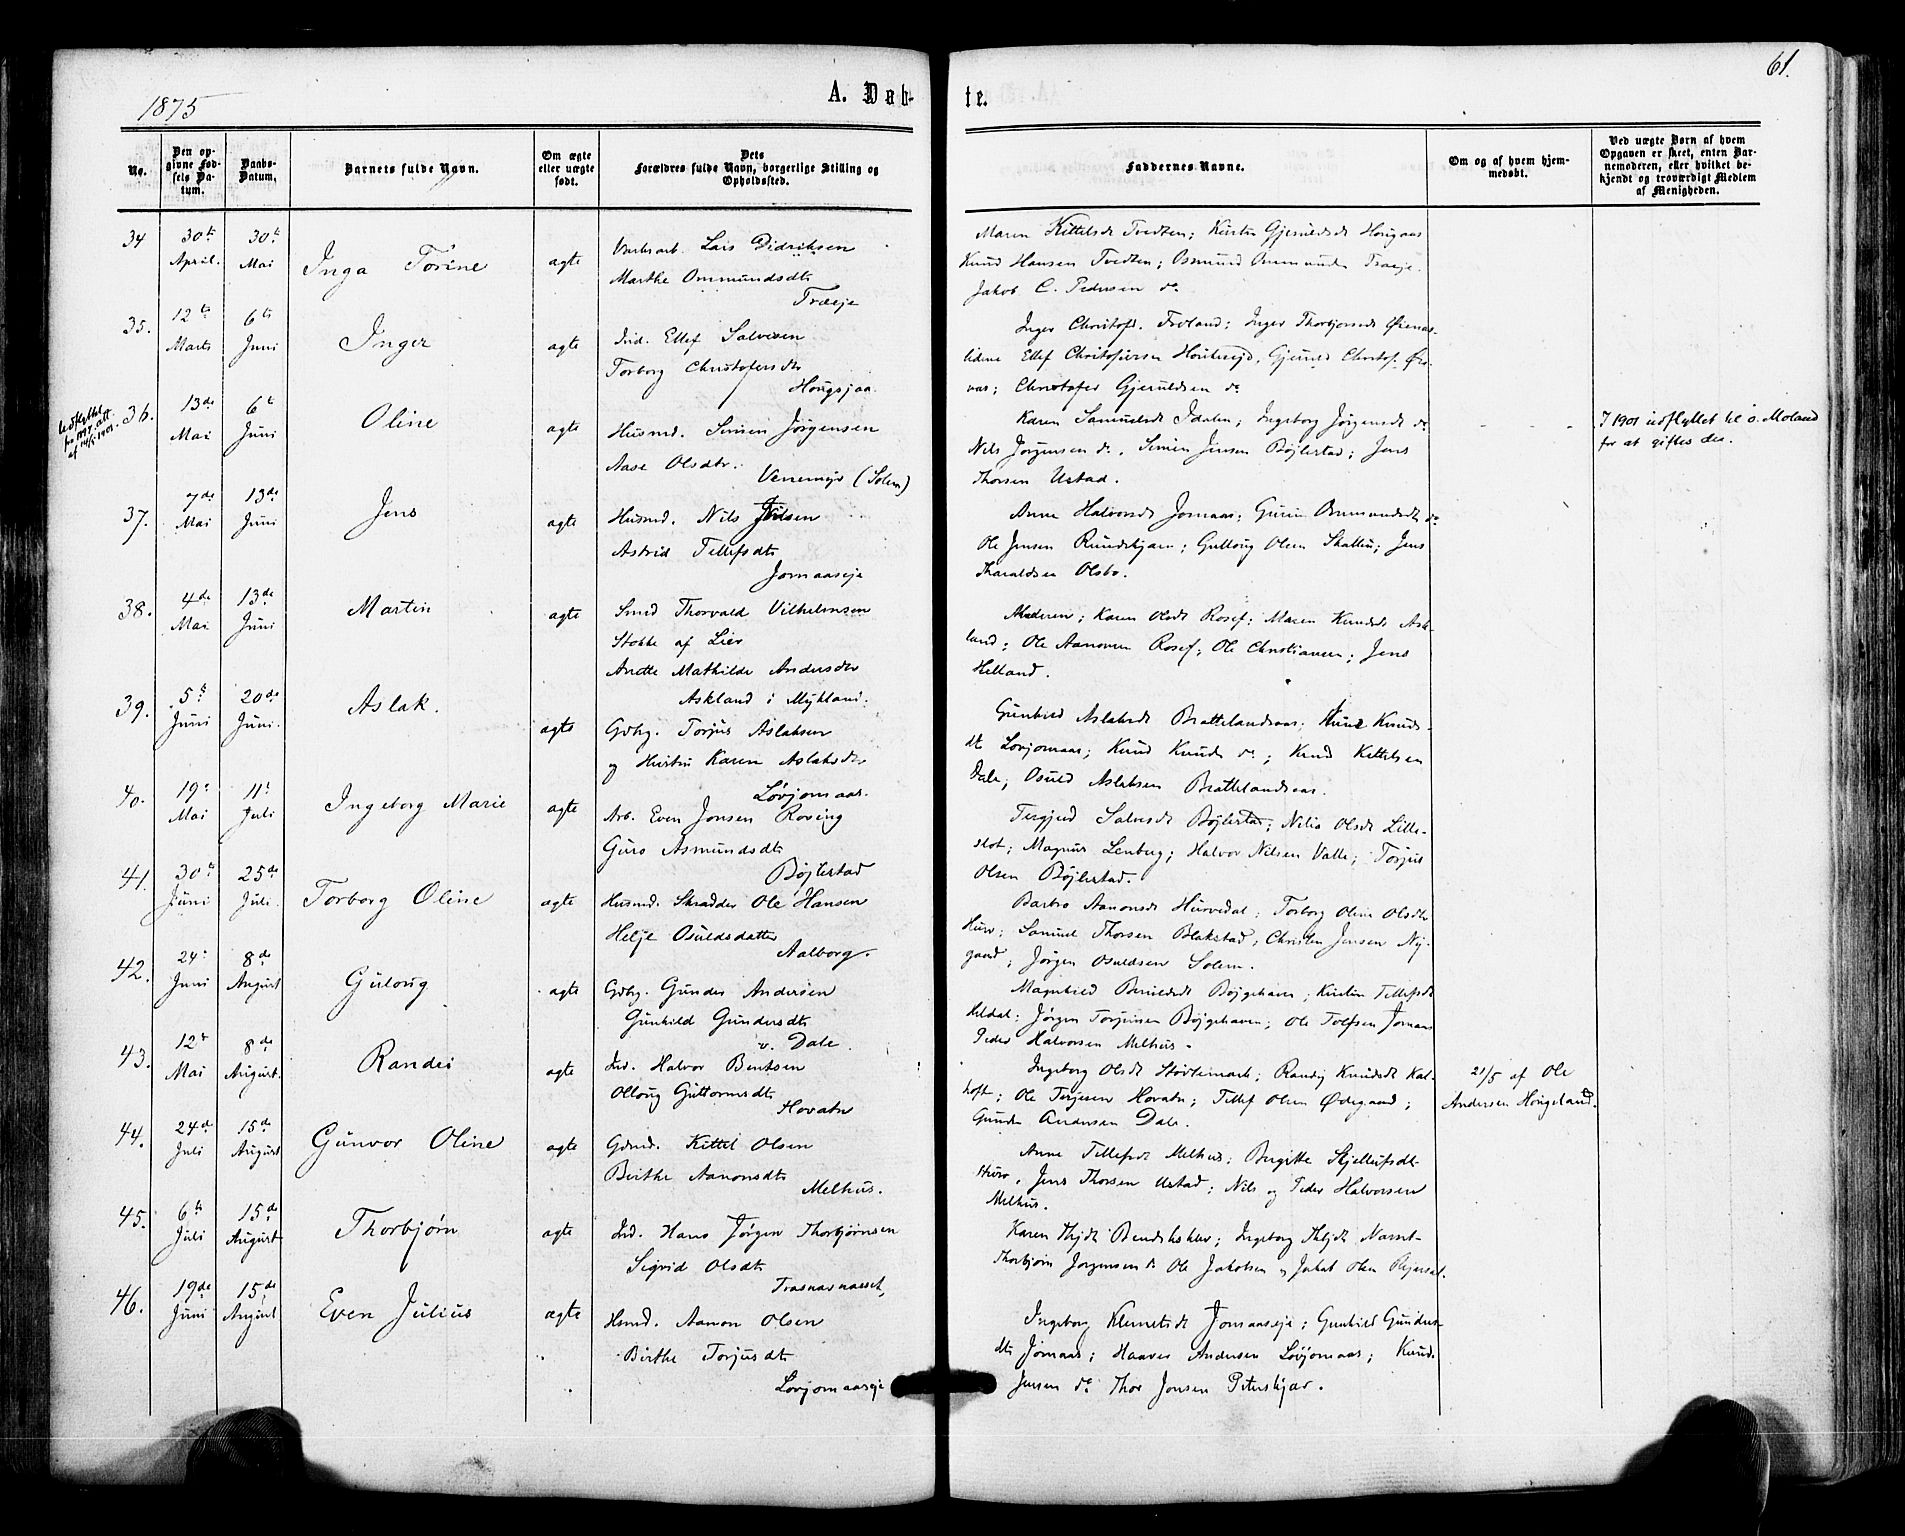 1875
A. Døb-
te.
61.
No.
Den opgivne Fødsels Datum.
Daabs-Datum.
Barnets fulde Navn.
Om ægte eller uægte født.
Dets Forældres fulde Navn, borgerlige Stilling og Opholdssted.
Faddernes Navne.
Om og af hvem hjemmedøbt.
Ved uægte Børn af hvem Opgaven er skeet, enten Barnemoderen, eller hvilket bekjendt og troværdigt Medlem af Menigheden.
34
30te April.
30te Mai
Inga Torine
agte
Lars Didriksen
Marthe Ommundsdt
Træeje
Maren Kittelsdt Tvedten; Kirsten Gjeruldsdt Hougaas
Knud Hansen Tvedten; Osmund Ommunds. Træeje.
Jakob C. Pedersen do
35.
12te Marts
6te Juni
Inger
agte
Ind. Ellef Salvesen
Torborg Christofersdtr
Hougsjaa.
Inger Christofs. Froland; Inger Thorbjørnsdt
Ellef Christofersen
Christofer Gjeruldsen do
36.
13de Mai
6te Juni
Oline
agte
Husmd. Simen Jørgensen
Aase Olsdtr.
Venemyr (Solem)
Karen Samuelsdt Idalen; Ingeborg Jørgensdt do
Nils Jørgensen do. Simen Jensen Bøjlestad; Jens
Thorsen Ustad.
I 1901 udflyttet til ø. Moland
for at giftes der.
37.
7de Mai
13de Juni
Jens
agte
Husmd. Nils Jensen
Astrid Tellefsdt
Jomaaseje
Anne Halvorsdt Jomaas; Guren Ommundsdt do
Ole Jensen Rundskjærn; Gulloug Olsen Skallen; Jens
Haraldsen Olsbo.
38.
4de Mai
13de Juni
Martin
agte
Smed Thorvald Vilhelmsen
Stokke af Lier
Anette Mathilde Andersdtr
Askland i Mykland.
Moderen; Karen Olsdt Rosef; Maren Knudsdt Ask-
land; Ole Aanonsen Rosef; Ole Christiansen; Jens
Helland.
39.
5te Juni
20de Juni.
Aslak.
agte
Gdbg. Torjus Aslaksen
og Hustru Karen Aslaksdtr
Løvjomaas.
Gunhild Aslaksdt Brattelandsaas; Anne Knuds-
dt Løvjomaas; Knud Knuds. do; Knud Kittelsen
Dale, Osuld Aslaksen Brattelandsaas.
40.
19de Mai
11te Juli
Ingeborg Marie
agte
Arb. Even Jonsen Roving
Guro Asmundsdt
Bøjlestad
Tergjerd Salvesdt Bøjlestad; Nilia Olsdt Lille-
slot; Magnus Lenberg; Halvor Nilsen Valle; Torjus
Olsen Bøjlestad.
41.
30te Juni
25de Juli.
Torborg Oline
agte
Husmd. Skrædder Ole Hansen
Helje Osuldsdatter
Aalborg.
Barbro Aanonsdt Hurvedal; Torborg Oline Olsdtr
Hurv; Samuel Thorsen Blakstad; Christen Jensen Ny-
gaard; Jørgen Osuldsen Solem.
42.
24de Juni
8de August
Guloug
agte
Gdbg. Gunder Andersen
Gunhild Gundersdt
v. Dale.
Magnhild Berulsdt Bøjgehaven; Kirsten Tellefsdt
Heldal; Jørgen Torjusen Bøjgehaven; Ole Tolfsen Jomaas
Peder Halvorsen Melhus.
43.
12te Mai
8de August.
Randei
agte
Ind. Halvor Bentsen
Olloug Guttormsdt
Hovatn
Ingeborg Olsdt Støvlemark; Randig Knudsdt Kal-
hoft; Ole Terjesen Hovatn; Tellef Olsen Ødegaard;
Gunder Andersen Dale.
21/5 af Ole
Andersen Hougeland.
44.
24de Juli
15de August
Gunvor Oline
agte
Gdmd. Kittel Olsen
Birthe Aanonsdt
Melhus.
Anne Tellefsdt Melhus; Birgitte Skjellufsdt
Hurv, Jens Thorsen Ustad; Nils og Peder Halvorsen
Melhus.
45.
6te Juli
15de August
Thorbjørn
agte
Ind. Hans Jørgen Thorbjørnsen
Sigrid Olsdt
Trasnarnæsset,
Karen Thjdt Bendiksklev; Ingeborg Næset
Thorbjørn Jørgensen do Ole Jakobsen og Jakob Olsen
46.
19de Juni
15de August
Even Julius
ægte
Hsmd. Aanon Olsen
Birthe Torjusdt
Løvjomaaseje
Ingeborg Klemetsdt Jomaaseje; Gunhild Gunders-
dt Jomaas; Haaver Andersen Løvjomaas; Knud
Jensen do Thor Jonsen Peterskjær.